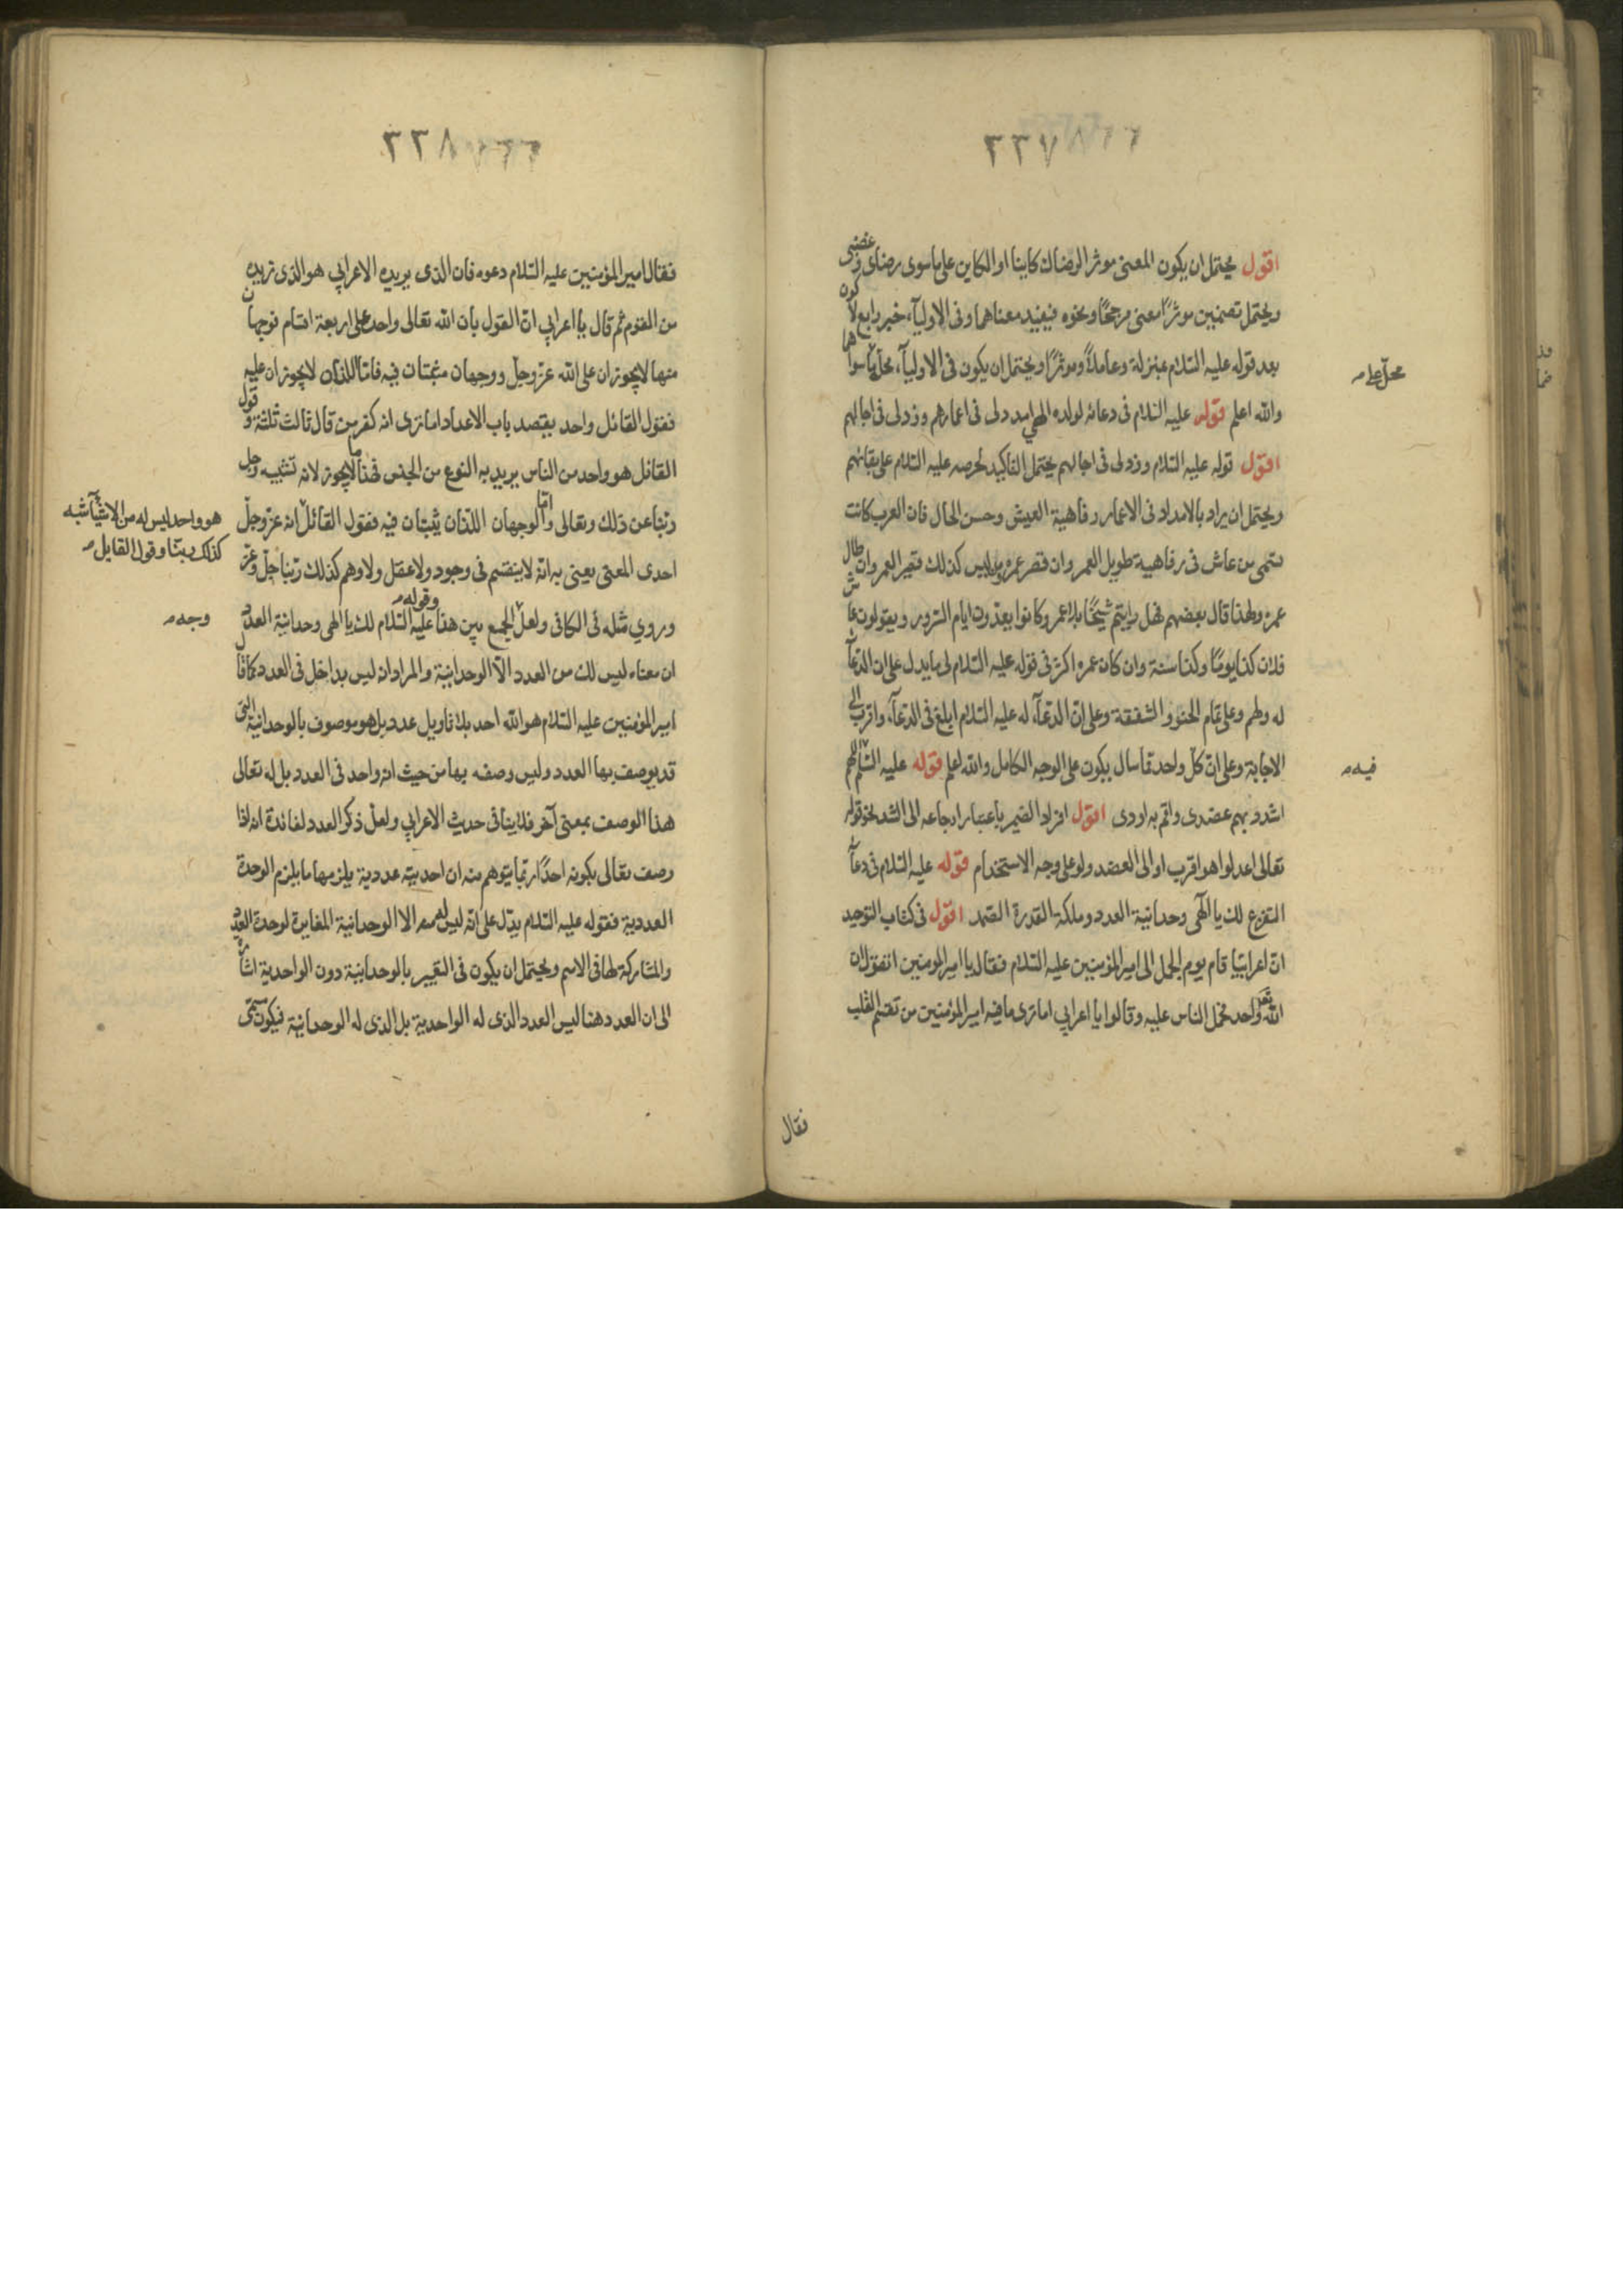 ٣٣٧
اقول يحتمل ان يكون المعنى موثر الرضاك كاينا او الكاين على ما سوى رضاى وغضبى
ويحتمل تضمين موثرا معنى مرجحًا ونحوه فيفيد معناهما وفى الاوليآء خبر رابع لا كون
بعد قوله عليه السّلام بمنزلة وعاملاً وموثرًا ويحتمل ان يكون فى الاوليآء محل ما سواهما
محل على
والله اعلم قوله عليه السّلام فى دعائه لولده الهى امدد لى فى اعمارهم وزد لى فى اجالهم
اقول قوله عليه السّلام وزد لى فى اجالهم يحتمل التاكيد لحرصه عليه السّلام على بقائهم
ويحتمل ان يراد بالامداد فى الاعمار رفاهية العيش وحسن الحال فان العرب كانت
تسمى من عاش فى رفاهية طويل العمر وان قصر عمره ومن ليس كذلك قصير العمر وان طال
عمره ولهذا قال بعضهم فهل رايتم شيخًا بلا عمر وكانوا يعدّون ايام السرور ويقولون عاش
فلان كذا يومًا وكذا سنة وان كان عمره اكثر فى قوله عليه السّلام لى ما يدل على ان الدعآء
له ولهم وعلى تمام الحنو والشفقة وعلى انّ الدعآء له عليه السّلام ابلغ فى الدعآء واقرب الى
الاجابة وعلى انّ كل واحد ما سال يكون على الوجه الكامل والله اعلم قوله عليه السّلم اللهم
فيه
اشدد بهم عضدى واقم به اودى اقول افراد الضمير باعتبار ارجاعه الى الشد نحو قوله
تعالى اعدلوا هو اقرب او الى العضد ولو على وجه الاستخدام قوله عليه السّلام فى دعآء
التفزع لك يا الهى وحدانية العدد وملكة القدرة الصّمد اقول فى كتاب التوحيد
انّ اعرابيّا قام يوم الجمل الى امير المؤمنين عليه السّلام فقال يا امير المومنين اتقول ان
الله واحد فحمل الناس عليه وقالوا يا اعرابي اما ترى ما فيه امير المؤمنين من تقسم القلب
فقال
٣٣٨
فقال امير المؤمنين عليه السّلام دعوه فان الذى يريده الاعرابي هو الذى نريده
من القوم ثم قال يا اعرابي انّ القول بان الله تعالى واحد على اربعة اقسام فوجهان
منها لا يجوزان على الله عزّ وجلّ ووجهان يثبتان فيه فامّا اللذان لا يجوزان عليه
فقول القائل واحد يقصد باب الاعداد اما ترى انه كفر من قال ثالث ثلثة وقول
القائل هو واحد من الناس يريد به النوع من الجنس فهذا ما لا يجوز لانه تشبيه وجل
ربّنا عن ذلك وتعالى وامّا الوجهان اللذان يثبتان فيه فقول القائل انه عزّ وجلّ
هو واحد ليس له من الاشيآء شبه
كذلك ربنا وقول القايل
احدى المعنى يعنى به انّه لا ينقسم فى وجود ولا عقل ولا وهم كذلك ربّنا جلّ وعزّ
وروي مثله فى الكافى ولعل الجمع بين هذا وقوله عليه السّلام لك يا الهى وحدانية العدد
وجه
ان معناه ليس لك من العدد الّا الوحدانيّة والمراد انه ليس بداخل فى العدد كما قال
امير المؤمنين عليه السّلام هو الله احد بلا تاويل عدد بل هو موصوف بالوحدانية التى
قد يوصف بها العدد وليس وصفه بها من حيث انه واحد فى العدد بل له تعالى
هذا الوصف بمعنى آخر فلا ينافى حديث الاعرابي ولعل ذكر العدد لفائدة انه اذا
وصف تعالى بكونه احدًا ربّما يتوهم منه ان احديته عددية يلزمها ما يلزم الوحدة
العددية فقوله عليه السّلام يدّل على انّه ليس له الا الوحدانية المغايرة لوحدة العدد
والمشاركة لها فى الاسم ويحتمل ان يكون فى التعبير بالوحدانيّة دون الواحدية اشارة
الى ان العدد هنا ليس العدد الذى له الواحدية بل الذى له الوحدانية فيكون